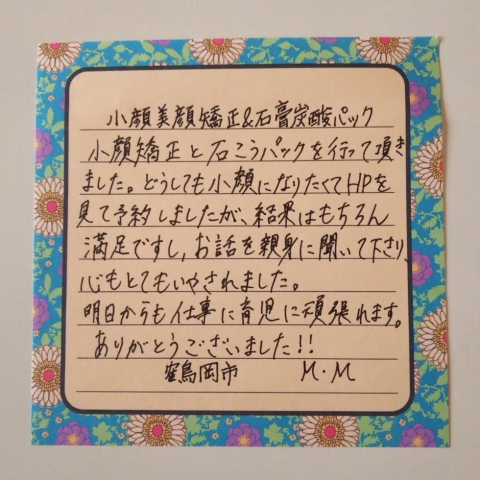 小顔美顔矯正&石膏炭酸パック
小顔矯正と石こうパックを行って頂き
ました。どうしても小顔になりたくてHPを
見て予約しましたが、結果はもちろん
満足ですし、お話を親身に聞いて下さり、
心もとてもいやされました。
明日からも仕事に育児に頑張れます。
ありがとうございました!!
鶴岡市 M・M